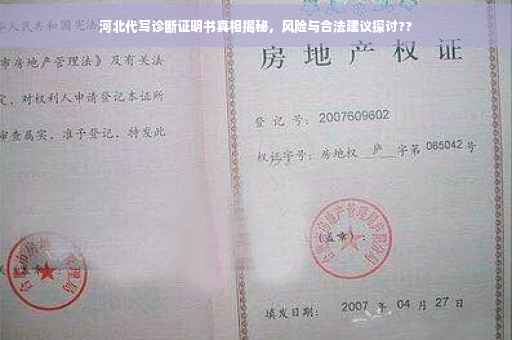 河北代写诊断证明书真相揭秘，风险与合法建议探讨??
人民共和国宪法
市房地产管理法》及有关法
定，对权利人申请登记本证所
审查属实，准予登记，特发此
房地产权
登记号：2007609602
权证字号：房地权 庐 字第 085042 号
(盖章)：
填发日期：2007 年 04 月 27 日